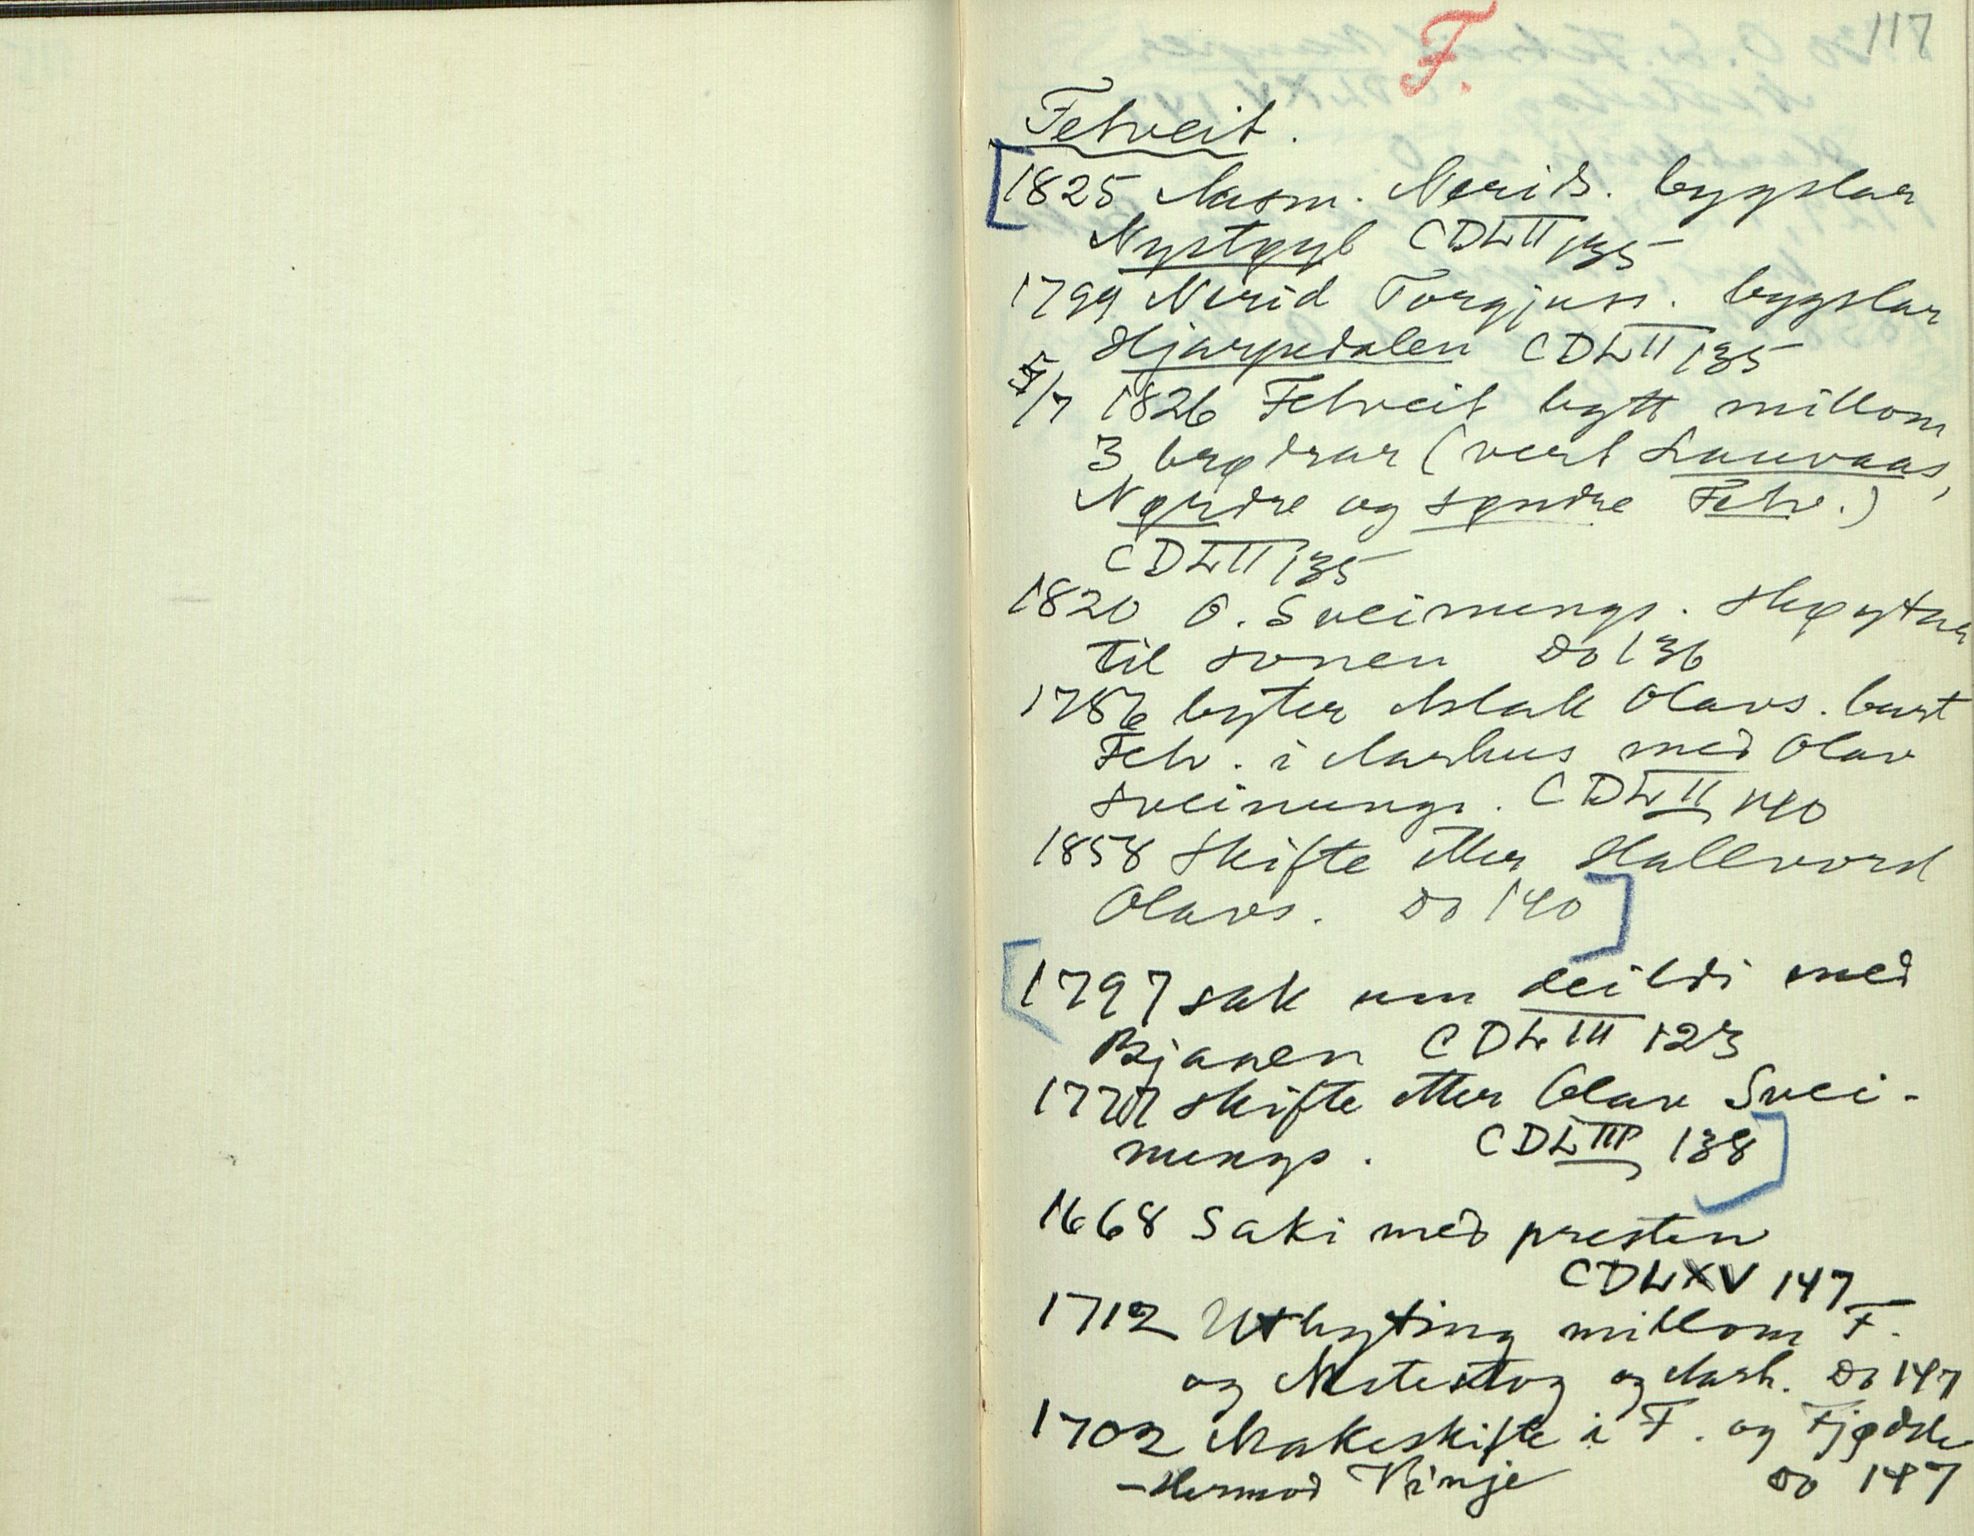 117
F.
Fetveit.
1825 Aasm. Nerids. bygslar
Nystøyl CDLII 135
1799 Nerid Torgjuss. bygslar
Hjarpedalen CDLII 135
5/7 1826 Fetveit bytt millom
3 brødrar (vert Lauvaas,
Nørdre og søndre Fetv.)
CDLII 135
1820 O. Sveinungs. skøyter
til sonen do 136
1786 byter Aslak Olavs. burt
Fetv. i Aarhus med Olav
Sveinungs. CDLII 140
1858 Skifte etter Hallvord
Olavs. do 140
1797 sak um deildi med
Bjaaen CDLIII 123
1777 skifte etter Olav Svei-
nungs. CDLIII 138
1668 Saki med presten
CDLXV 147
1712 Utbyting millom F.
og Nistestog og Aarh. do 147
1702 Makeskifte i F. og Fjødde
- Hermod Vinje do 147